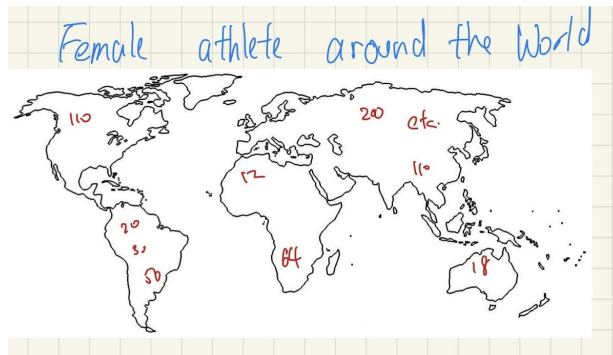 Female athlete around the World
110
200
etc.
110
12
20
50
64
18